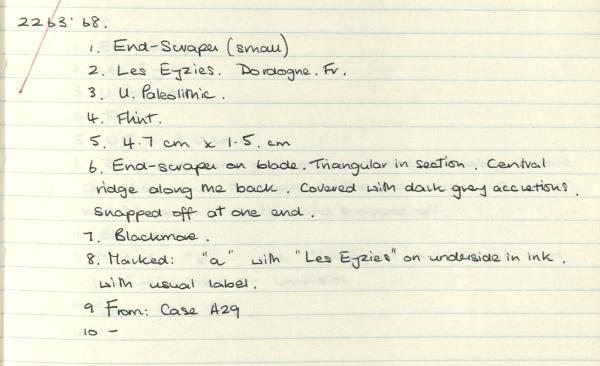 2263'68.
1. End-Scraper (small)
2. Les Eyzies. Dordogne. Fr.
3. U. Paleolithic.
4. Flint.
5. 4.7 cm x 1.5. cm
6. End-scraper on blade. Triangular in section. Central
ridge along the back. Covered with dark grey accretions.
Snapped off at one end.
7. Blackmore.
8. Marked: "a" with "Les Eyzies" on underside in ink.
with usual label.
9 From: Case A29
10 -